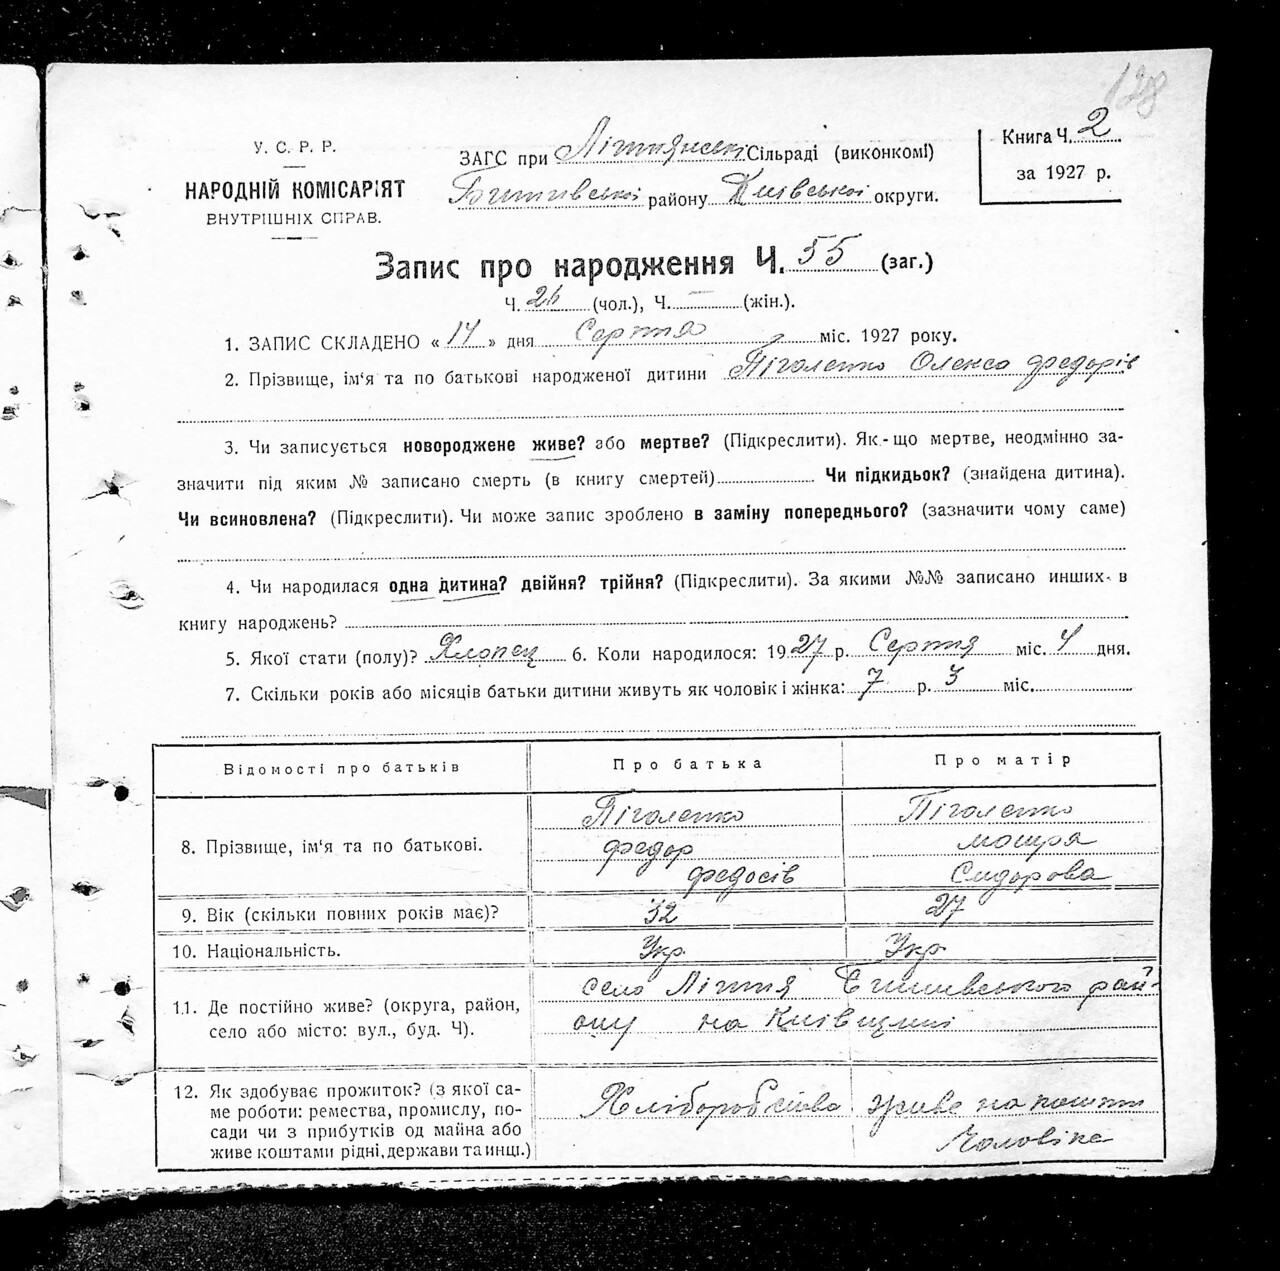 128
У. С. Р. Р.
НАРОДНІЙ КОМІСАРІЯТ
ВНУТРІШНІХ СПРАВ.
ЗАГС при Літнянські Сільраді (виконкомі)
Бишівської району Київської округи.
Книга Ч. 2
за 1927 р.
Запис про народження Ч. 55 (заг.)
Ч. 26 (чол.), Ч. — (жін.).
1. ЗАПИС СКЛАДЕНО « 14 » дня Серпня міс. 1927 року.
2. Прізвище, ім'я та по батькові народженої дитини Піголенко Олекса Федорів
3. Чи записується новороджене живе? або мертве? (Підкреслити). Як-що мертве, неодмінно за-
значити під яким № записано смерть (в книгу смертей) Чи підкидьок? (знайдена дитина).
Чи всиновлена? (Підкреслити). Чи може запис зроблено в заміну попереднього? (зазначити чому саме)
4. Чи народилася одна дитина? двійня? трійня? (Підкреслити). За якими №№ записано инших в
книгу народжень?
5. Якої стати (полу)? Хлопец 6. Коли народилося: 1927 р. Серпня міс. 4 дня.
7. Скільки років або місяців батьки дитини живуть як чоловік і жінка: 7 р. 3 міс.
Відомості про батьків Про батька Про матір
8. Прізвище, ім'я та по батькові.
Піголенко Піголенко
Федор мотря
Федосів Сидорова
9. Вік (скільки повних років має)? 32 27
10. Національність. Укр Укр
11. Де постійно живе? (округа, район,
село або місто: вул., буд. Ч).
село Літня Бишівського рай-
ону на Київщині
12. Як здобуває прожиток? (з якої са-
ме роботи: ремества, промислу, по-
сади чи з прибутків од майна або
живе коштами рідні, держави та инщ.)
живе на кошти
Чоловіка